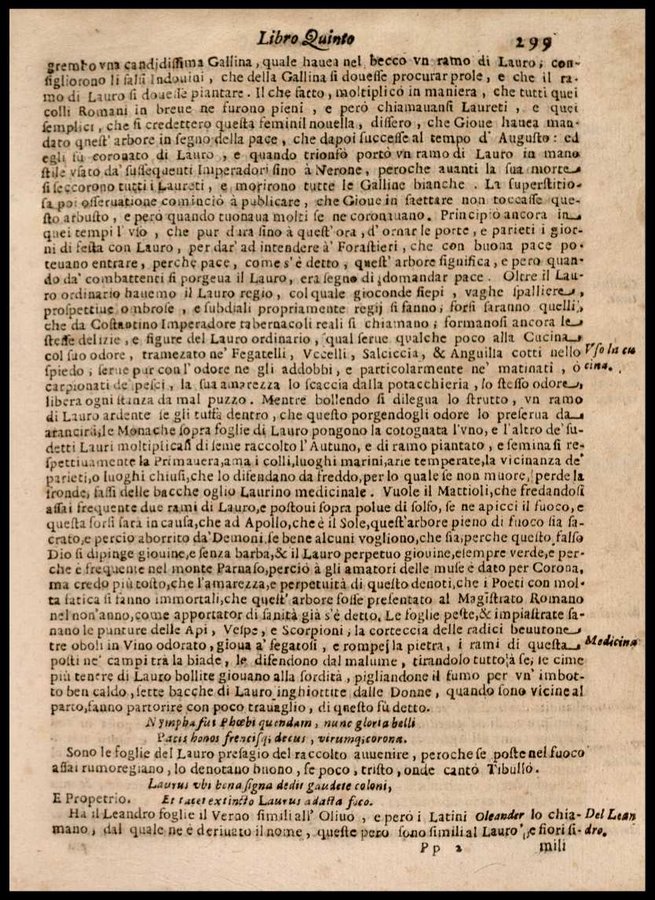 Libro Quinto 299
grembo vna candidissima Gallina, quale hauea nel becco vn ramo di Lauro; con-
sigliorono li falsi Indouini, che della Gallina si douesse procurar prole, e che il ra-
mo di Lauro si douesse piantare. Il che fatto, moltiplicò in maniera, che tutti quei
colli Romani in breue ne furono pieni, e però chiamauansi Laureti, e quei
semplici, che si credettero questa feminil nouella, dissero, che Gioue hauea man-
dato quest' arbore in segno della pace, che dapoi successe al tempo d' Augusto: ed
egli fù coronato di Lauro, e quando trionfò portò vn ramo di Lauro in mano
stile vsato da' sussequenti Imperadori sino à Nerone, peroche auanti la sua morte
si seccorono tutti i Laureti, e morirono tutte le Galline bianche. La superstitio-
sa poi osseruatione cominciò a publicare, che Gioue in saettare non toccasse que-
sto arbusto, e però quando tuonaua molti se ne coronauano. Principiò ancora in
quei tempi l' vso, che pur dura sino à quest' ora, d' ornar le porte, e parieti i gior-
ni di festa con Lauro, per dar' ad intendere à' Forastieri, che con buona pace po-
teuano entrare, perche pace, come s' è detto, quest' arbore significa, e pero quan-
do da' combattenti si porgeua il Lauro, era segno di domandar pace. Oltre il Lau-
ro ordinario hauemo il Lauro regio, col quale gioconde siepi, vaghe spalliere,
prospettiue ombrose, e subdiali propriamente regij si fanno; forsi saranno quelli,
che da Costantino Imperadore tabernacoli reali si chiamano; formanosi ancora le
stesse delizie, e figure del Lauro ordinario, qual serue qualche poco alla Cucina
col suo odore, tramezato ne' Fegatelli, Vccelli, Salciccia, & Anguilla cotti nello
Vso in cu
spiedo; serue pur con l' odore ne gli addobbi, e particolarmente ne' matinati, ò
cina.
carpionati de' pesci, la sua amarezza lo scaccia dalla potacchieria, lo stesso odore
libera ogni stanza da mal puzzo. Mentre bollendo si dilegua lo strutto, vn ramo
di Lauro ardente se gli tuffa dentro, che questo porgendogli odore lo preserua da
arancirsi, le Monache sopra foglie di Lauro pongono la cotognata l'vno, e l'altro de' su-
detti Lauri moltiplicasi di seme raccolto l'Autuno, e di ramo piantato, e semina si re-
spettiuamente la Primauera, ama i colli, luoghi marini, arie temperate, la vicinanza de'
parieti, o luoghi chiusi, che lo difendano da freddo, per lo quale se non muore, perde la
fronde, fassi delle bacche oglio Laurino medicinale. Vuole il Mattioli, che fredandosi
assai frequente due rami di Lauro, e postoui sopra polue di solfo, se ne apicci il fuoco, e
questa forsi sarà in causa, che ad Apollo, che è il Sole, quest'arbore pieno di fuoco sia sa-
crato, e percio aborrito da'Demoni, se bene alcuni vogliono, che sia, perche questo falso
Dio si dipinge giouine, e senza barba, & il Lauro perpetuo giouine, e sempre verde, e per-
che è frequente nel monte Parnaso, perciò à gli amatori delle muse è dato per Corona,
ma credo più tosto, che l'amarezza, e perpetuità di questo denoti, che i Poeti con mol-
ta fatica si fanno immortali, che quest' arbore fosse presentato al Magistrato Romano
nel non'anno, come apportator di sanità già s'è detto. Le foglie peste, & impiastrate sa-
nano le punture delle Api, Vespe, e Scorpioni, la corteccia delle radici beuutone
tre oboli in Vino odorato, gioua a' fegatosi, e rompe la pietra, i rami di questa
Medicina
posti ne' campi trà la biade, le difendono dal malume, tirandolo tutto à se; le cime
più tenere di Lauro bollite giouano alla sordità, pigliandone il fumo per vn' imbot-
to ben caldo, sette bacche di Lauro inghiottite dalle Donne, quando sono vicine al
parto, fanno partorire con poco trauaglio, di questo fù detto.
Nympha fui Phœbi quendam, nunc gloria belli
Pacis honos frencisq; decus, virumq; corona.
Sono le foglie del Lauro presagio del raccolto auuenire, peroche se poste nel fuoco
assai rumoregiano, lo denotano buono, se poco, tristo, onde cantò Tibullo.
Laurus vbi bona signa dedit gaudete coloni,
E Propetrio. Et tacet extincto Laurus adasta foco.
Ha il Leandro foglie il Verno simili all' Oliuo, e però i Latini Oleander lo chia-
Del Lean
mano, dal quale ne è deriuato il nome, queste pero sono simili al Lauro, e fiori si-
dro.
Pp 2 mili